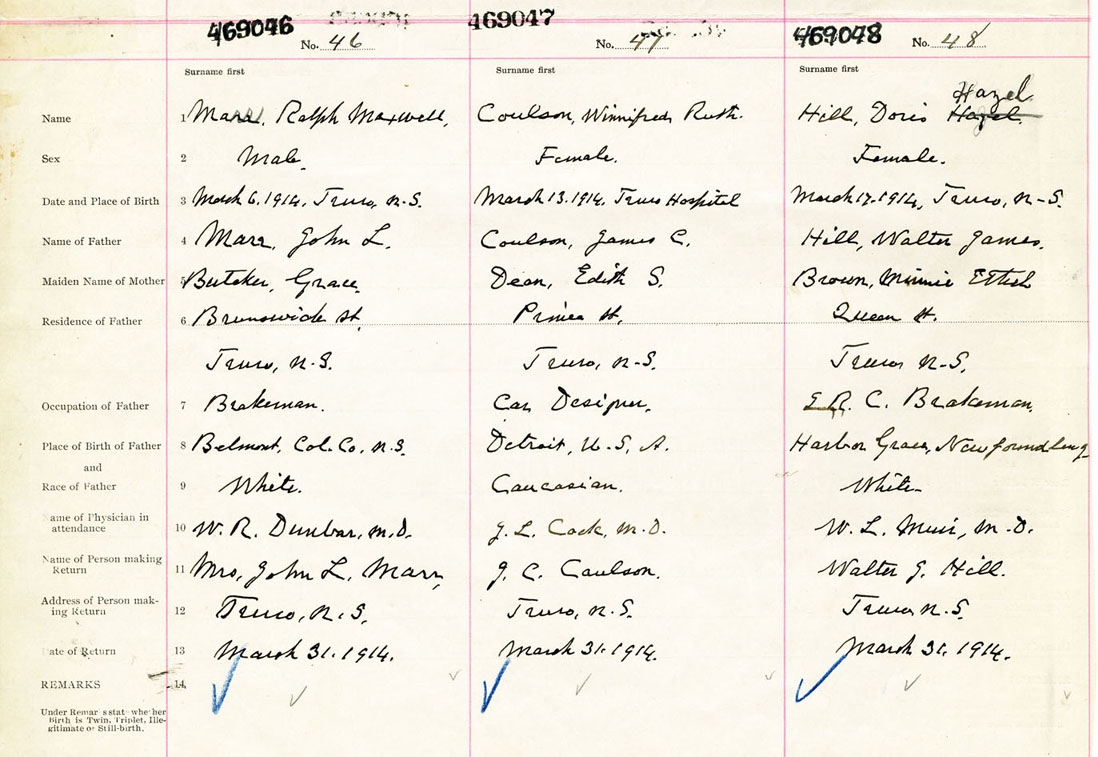 469046 No. 46 469047 No. 47 469048 No. 48
Surname first Surname first Surname first
Hazel
Name 1 Marr, Ralph Maxwell, Coulson, Winnifred Ruth. Hill, Doris Hazel.
Sex 2 Male. Female. Female.
Date and Place of Birth 3 March 6. 1914, Truro, N.S. March 13. 1914, Truro Hospital March 17. 1914, Truro, N-S.
Name of Father 4 Marr, John L. Coulson, James C. Hill, Walter James.
Maiden Name of Mother 5 Butcher, Grace. Dean, Edith S. Brown, Minnie Ethel
Residence of Father 6 Brunswick St. Prince St. Queen St.
Truro, N.S. Truro, N-S. Truro N-S.
Occupation of Father 7 Brakeman. Car Designer. C. Brakeman,
Place of Birth of Father 8 Belmont, Col. Co, N.S. Detroit, U.S.A. Harbor Grace, Newfoundland
and
Race of Father 9 White. Caucasian. White
Name of Physician in
attendance 10 W. R. Dunbar, M.D. J. L. Cock, M.D. W. L. Muir, M-D.
Name of Person making
Return 11 Mrs, John L. Marr, J. C. Coulson. Walter J. Hill.
Address of Person mak-
ing Return 12 Truro, N.S. Truro, N.S. Truro N.S.
Date of Return 13 March 31. 1914. March 31. 1914. March 31. 1914.
REMARKS 14
Under Remarks stat whether
Birth is Twin, Triplet, Ille-
gitimate or Still-birth.